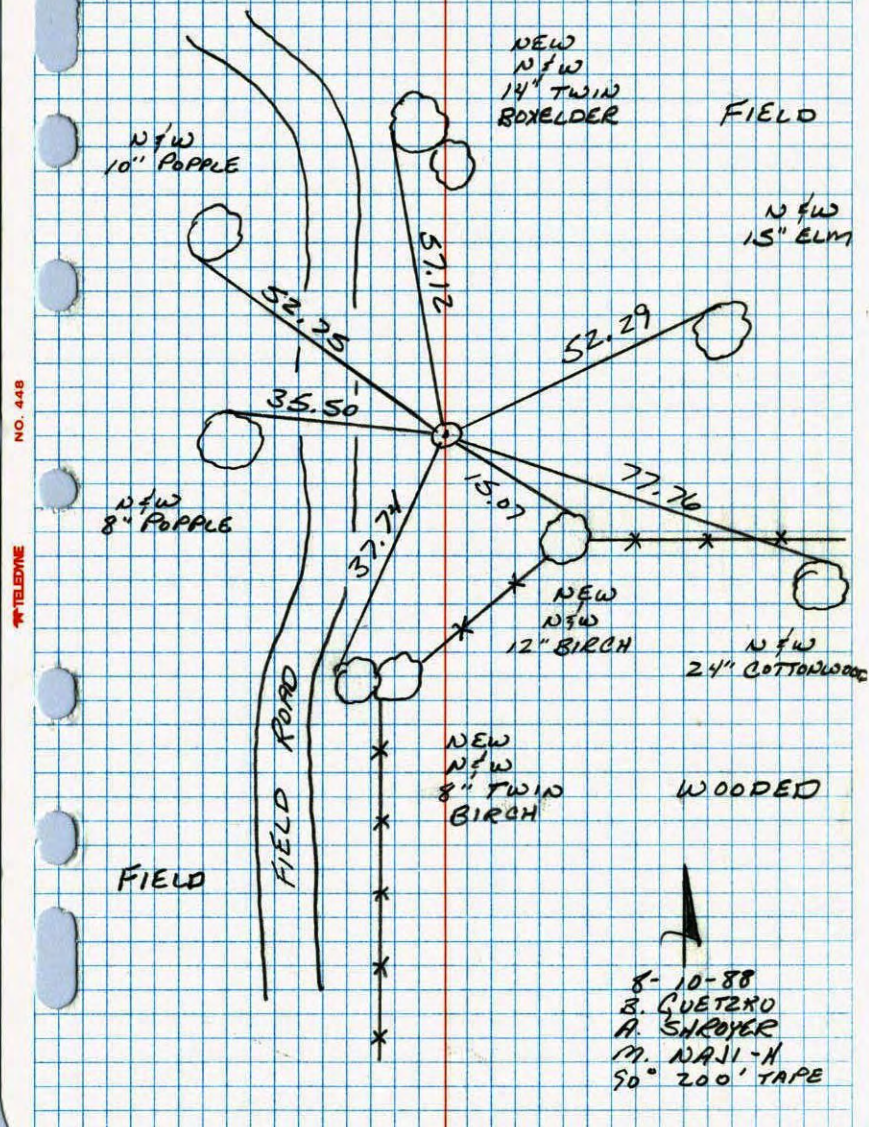 NEW
N & W
14" TWIN
BOXELDER
FIELD
N & W
10" POPPLE
N & W
15" ELM
57.12
52.75
52.29
35.50
NO. 448
77.76
15.07
N & W
8" POPPLE
37.74
TELEDYNE
NEW
N & W
12" BIRCH
N & W
24" COTTONWOOD
FIELD ROAD
NEW
N & W
8" TWIN
BIRCH
WOODED
FIELD
8-10-88
B. GUETZKO
A. SHROYER
M. NAJI-H
90° 200' TAPE